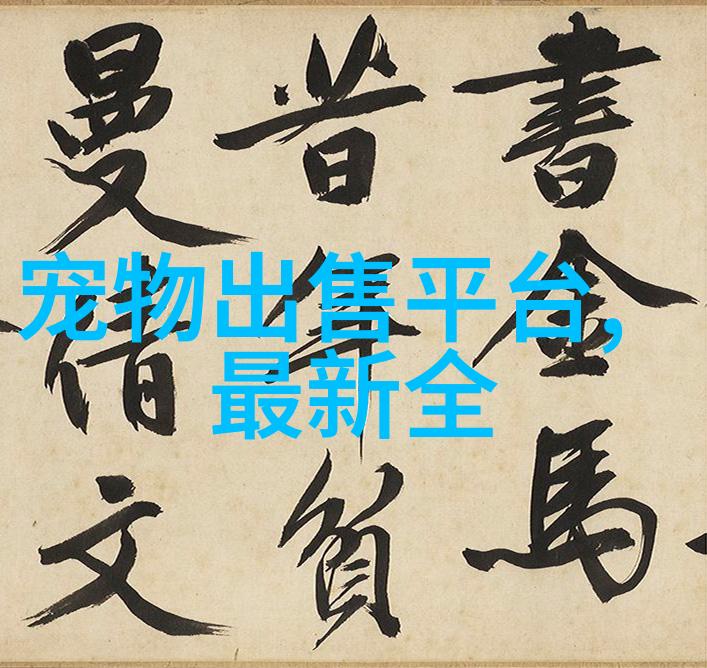 書金馬
昔年
曼倩文
宠物出售平台,
最新全